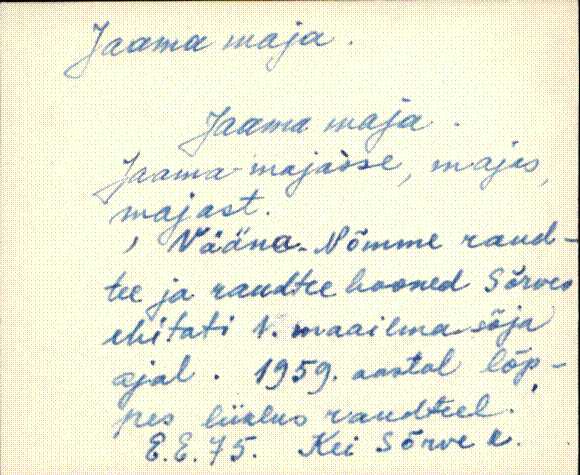 Jaama maja.
Jaama maja.
Jaama majasse, majas,
majast.
Vääna-Nõmme raud-
tee ja raudtee hooned Sõrves
ehitati 1. maailma sõja
ajal. 1959. aastal lõp-
pes liiklus raudteel.
E.E.75. Kei Sõrve k.